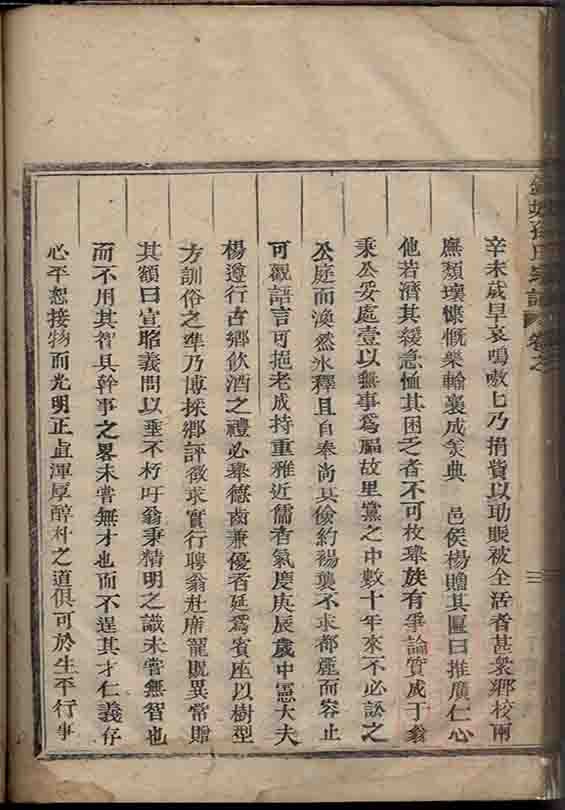 辛未歲旱哀鳴嗷嗷七乃捐貲以助賑被全活者甚衆鄉校兩
廡頽壞慷慨樂輸襄成美典 邑侯楊贈其匾曰推廣仁心
他若濟其緩急恤其困乏者不可枚舉族有爭論質成于翁
秉公妥處壹以無事爲福故里黨之中數十年來不必訟之
公庭而渙然氷釋且自奉尚其儉約裼襲不求都麗而容止
可觀語言可挹老成持重雅近儒者氣慶庚辰歲中憲大夫
楊遵行古鄉飲酒之禮必舉德齒兼優者延爲賓座以樹型
方訓俗之準乃博採鄉評徵求實行聘翁赴席寵既異常贈
其額曰宣昭義問以垂不朽吁翁秉精明之識未嘗無智也
而不用其智具幹事之畧未嘗無才也而不逞其才仁義存
心平恕接物而光明正直渾厚醇朴之道俱可於生平行事